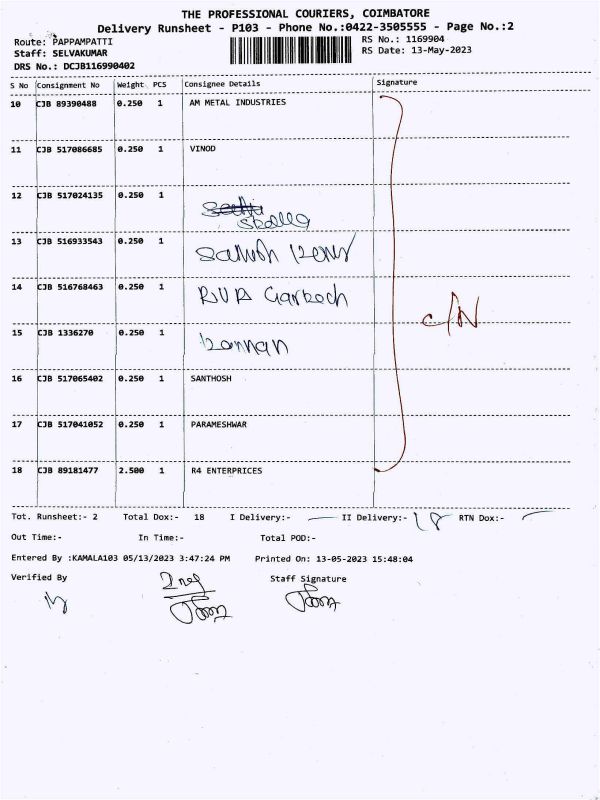 THE PROFESSIONAL COURIERS, COIMBATORE
Delivery Runsheet - P103 - Phone No.:0422-3505555 - Page No.:2
Route: PAPPAMPATTI RS No.: 1169904
Staff: SELVAKUMAR RS Date: 13-May-2023
DRS No.: DCJB116990402
S No Consignment No Weight PCS Consignee Details Signature
10 CJB 89390488 0.250 1 AM METAL INDUSTRIES
11 CJB 517086685 0.250 1 VINOD
12 CJB 517024135 0.250 1
13 CJB 516933543 0.250 1
14 CJB 516768463 0.250 1
c/N
15 CJB 1336270 0.250 1 kannan
16 CJB 517065402 0.250 1 SANTHOSH
17 CJB 517041052 0.250 1 PARAMESHWAR
18 CJB 89181477 2.500 1 R4 ENTERPRICES
Tot. Runsheet:- 2 Total Dox:- 18 I Delivery:- II Delivery:- 18 RTN Dox:-
Out Time:- In Time:- Total POD:-
Entered By :KAMALA103 05/13/2023 3:47:24 PM Printed On: 13-05-2023 15:48:04
Verified By Staff Signature